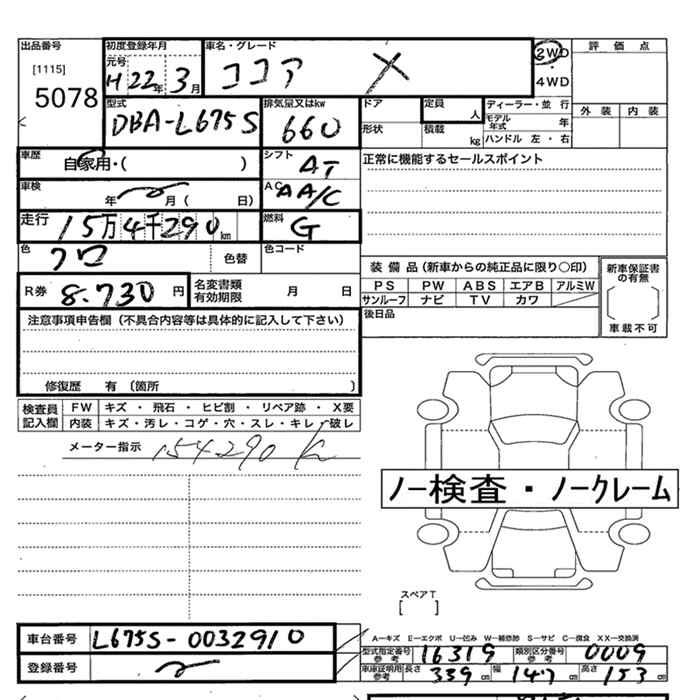 出品番号
[1115]
5078
初度登録年月
元号
H 22年 3月
車名・グレード
ココア X
2WD
・
4WD
評価点
外装 内装
型式
DBA-L675S
排気量又はkw
660
ドア
定員
人
形状
積載
kg
ディーラー・並 行
モデル年式 年
ハンドル 左・右
車歴
自家用・( )
シフト
AT
正常に機能するセールスポイント
車検
年 月( 日)
AC
AA/C
走行
15万4千290km
燃料
G
色
クロ
色替
色コード
装備品(新車からの純正品に限り○印)
PS PW ABS エアB アルミW
サンルーフ ナビ TV カワ
新車保証書の有無
車載不可
R券 8.730円
名変書類有効期限 月 日
後日品
注意事項申告欄(不具合内容等は具体的に記入して下さい)
修復歴 有〔箇所 〕
検査員記入欄
FW キズ・飛石・ヒビ割・リペア跡・X要
内装 キズ・汚レ・コゲ・穴・スレ・キレ・破レ
メーター指示 154290 K
ノー検査・ノークレーム
スペアT
[ ]
車台番号 L675S-0032910
登録番号
A―キズ E―エクボ U―凹み W―補修跡 S―サビ C―腐食 XX―交換済
型式指定番号 参考 16319
類別区分番号 参考 0009
車庫証明用 参考 長さ 339cm 幅 147cm 高さ 153cm